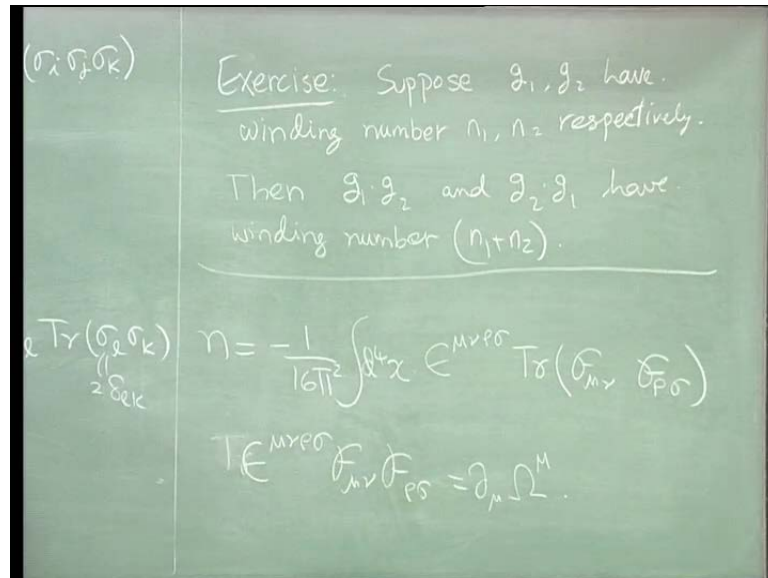 (σᵢ σⱼ σₖ)
Exercise: Suppose g₁, g₂ have
winding number n₁, n₂ respectively.
Then g₁·g₂ and g₂·g₁ have
winding number (n₁+n₂).
ℓ Tr(σₗ σₖ)
2δₗₖ
n = -1/16π² ∫d⁴x ϵ^{μνρσ} Tr(F_{μν} F_{ρσ})
Tϵ^{μνρσ} F_{μν} F_{ρσ} = ∂_μ Ω^μ.